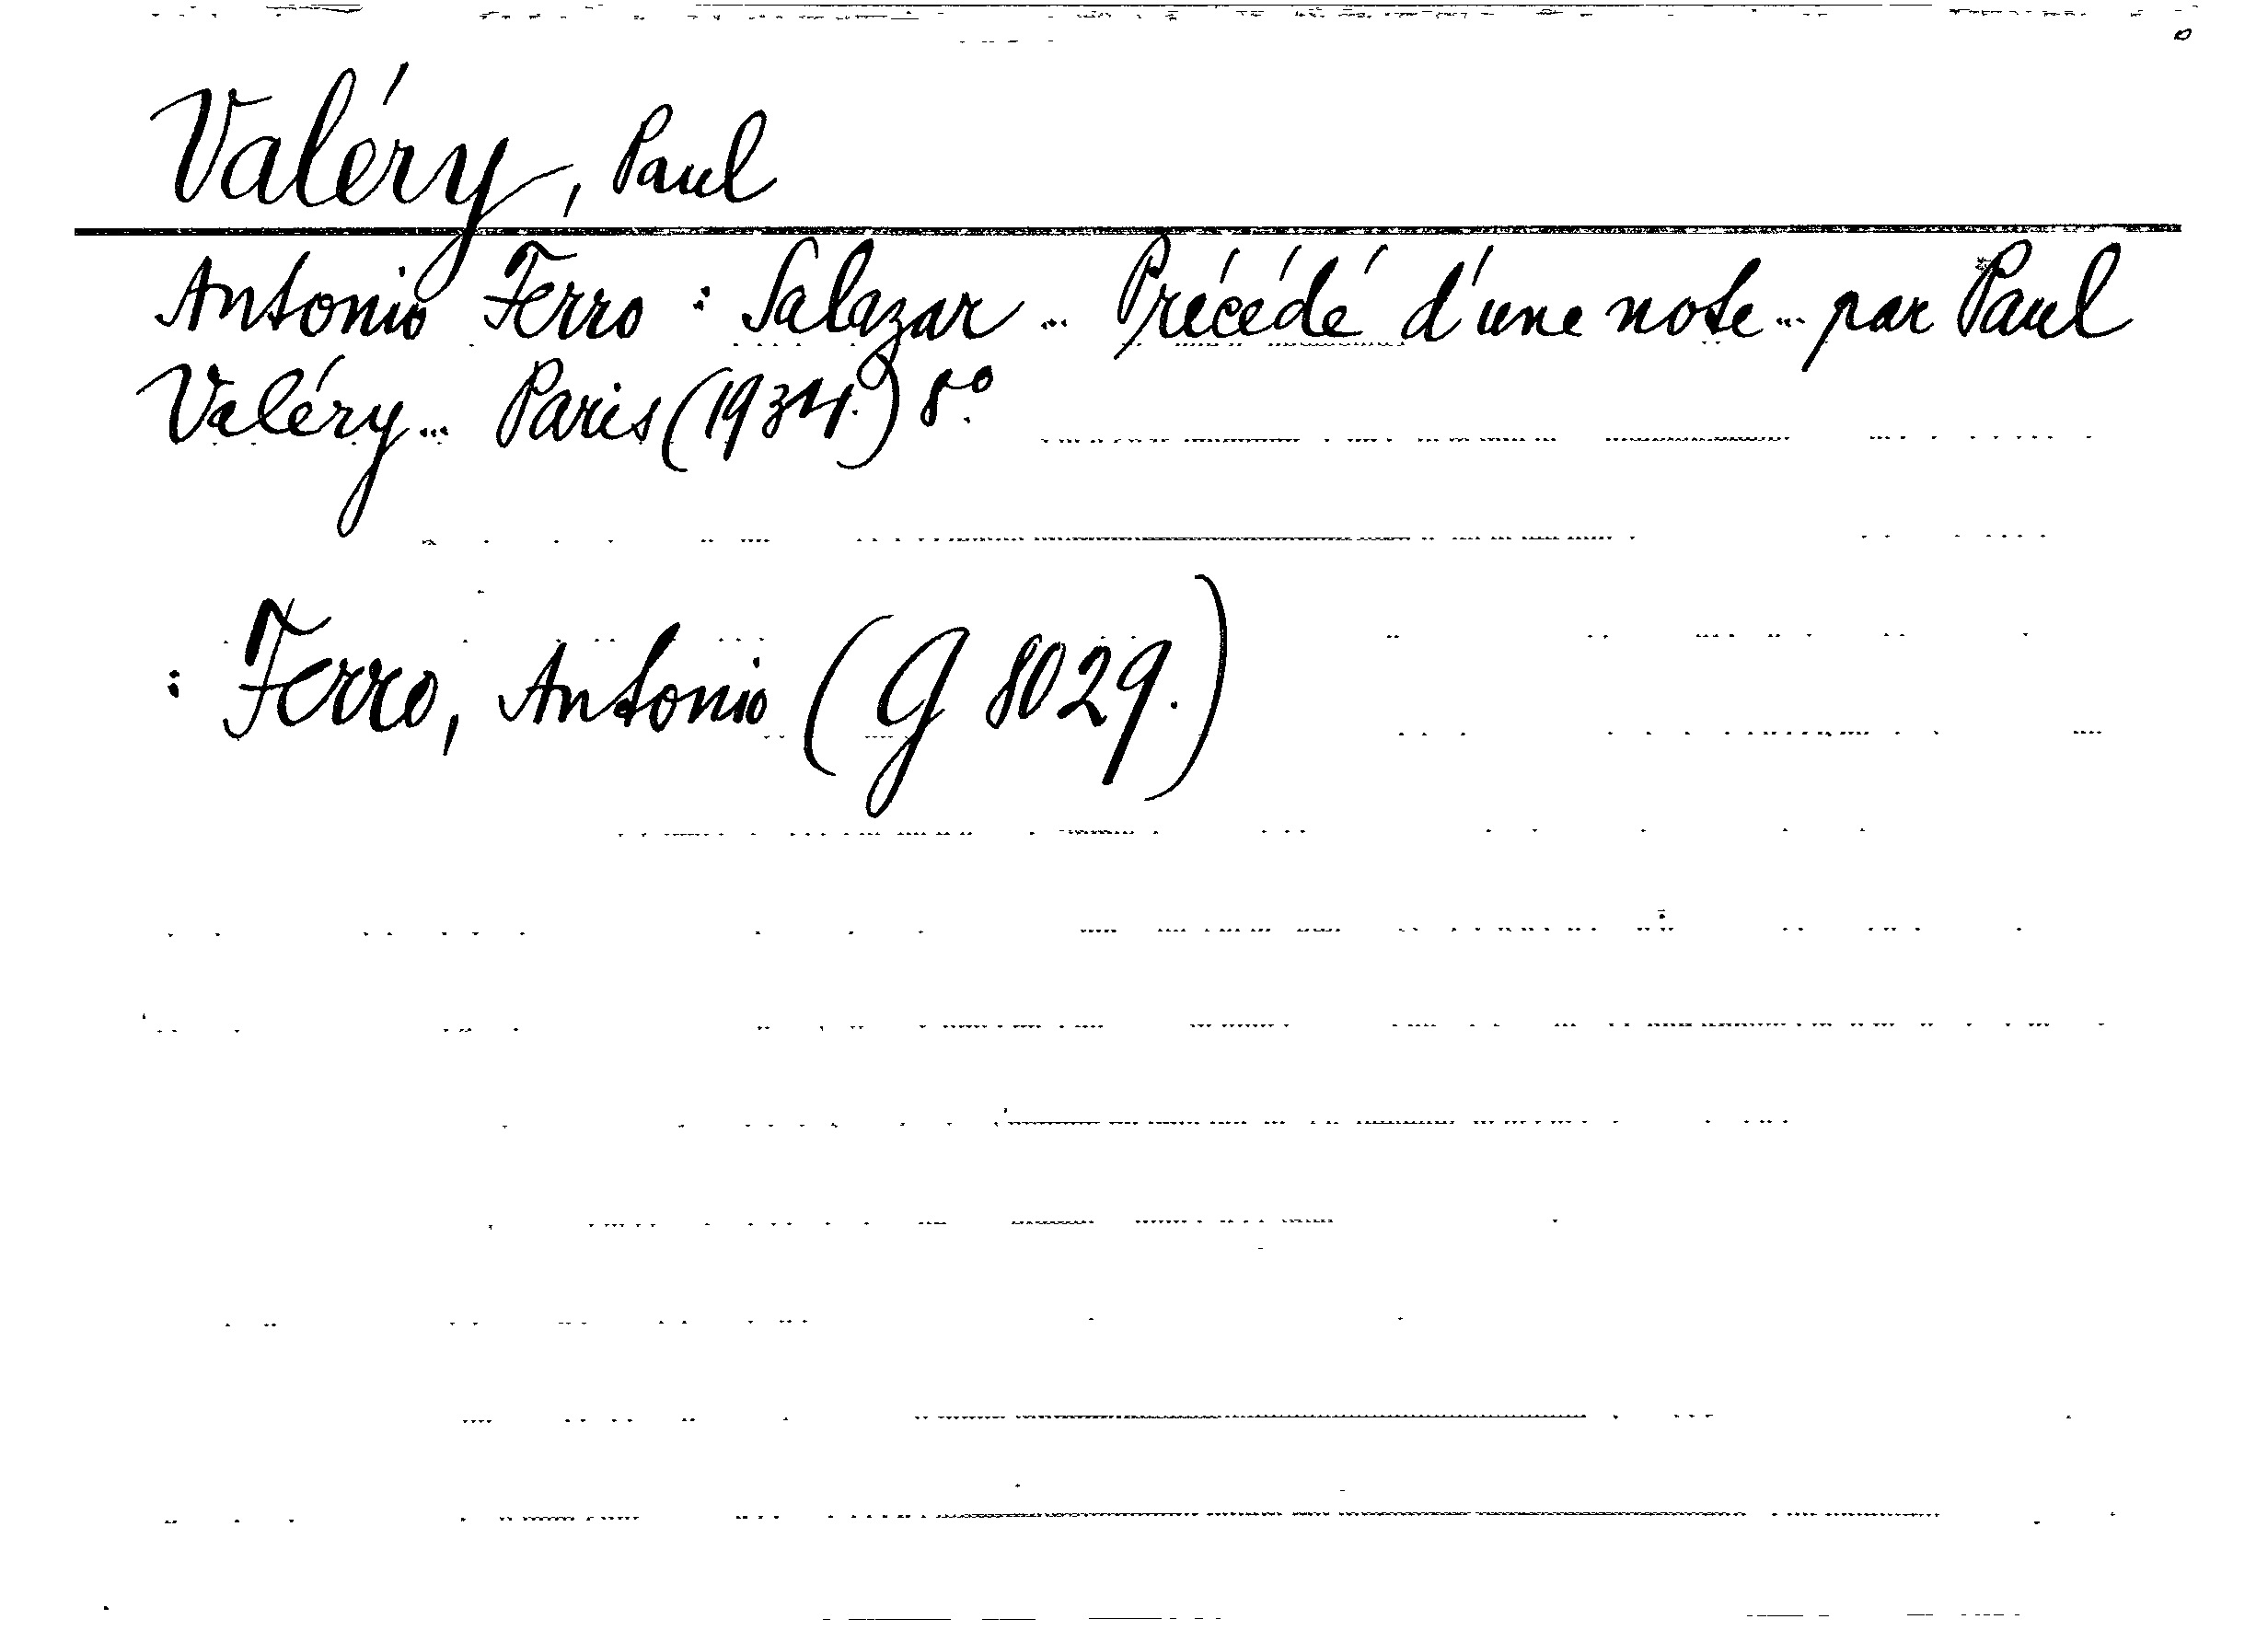 Valéry, Paul
Antonio Ferro : Salazar ... Précédé d'une note ... par Paul
Valéry ... Paris (1934.) 8°.
: Ferro, Antonio (G 8029.)